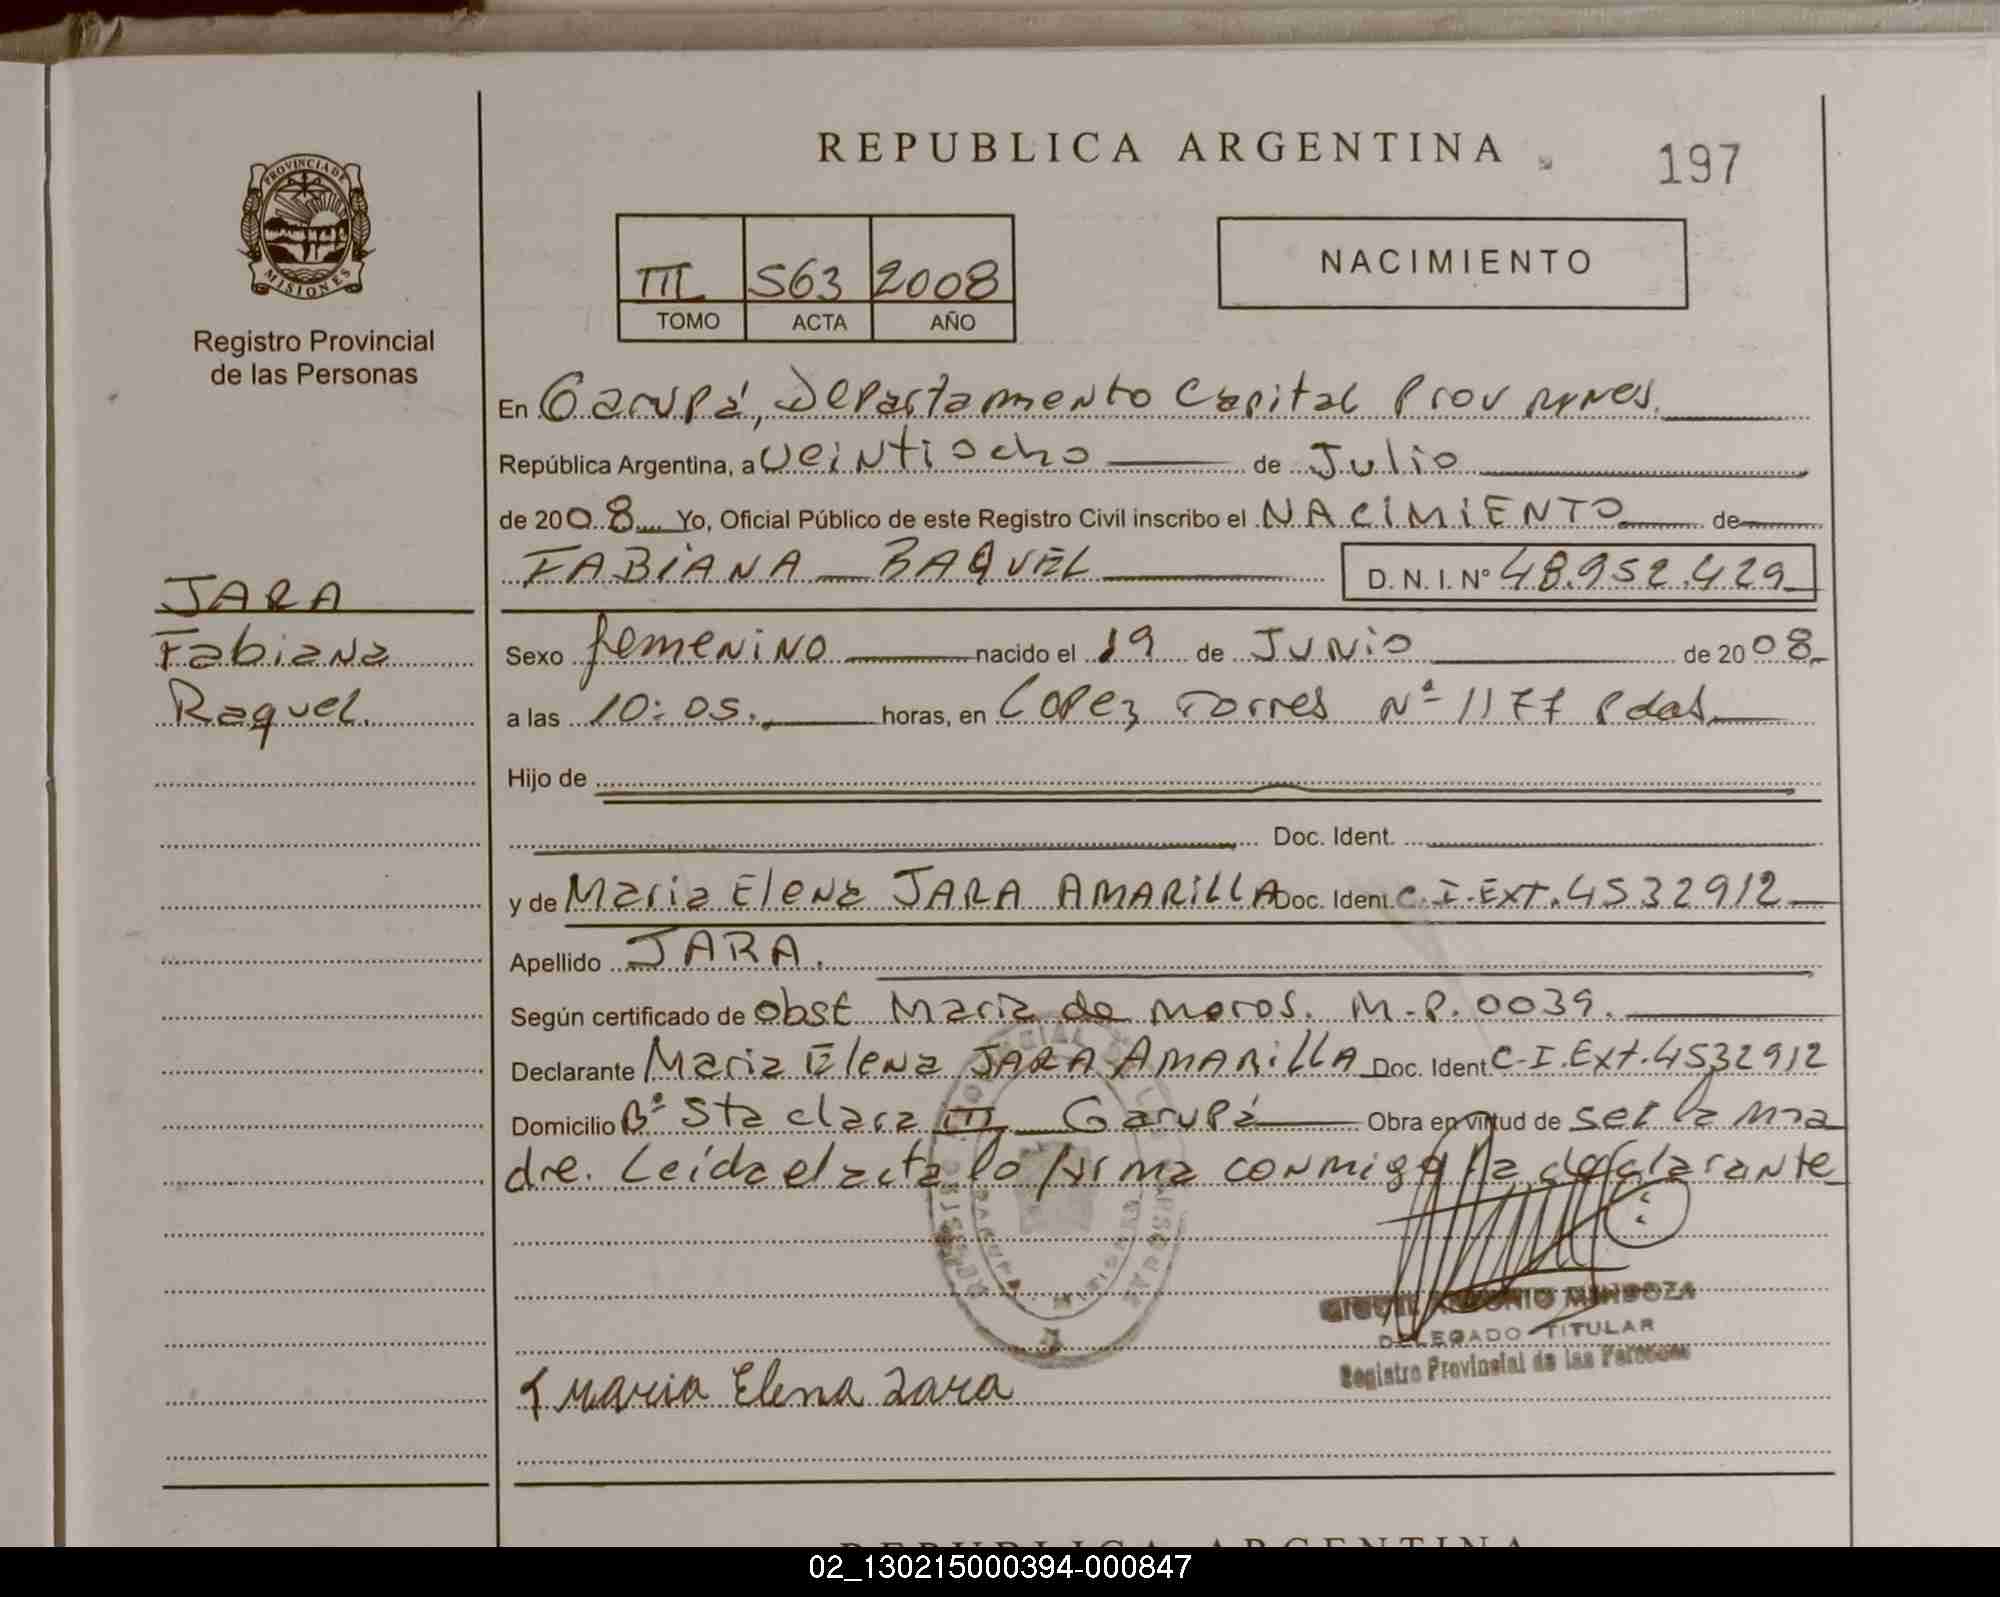 REPUBLICA ARGENTINA
197
PROVINCIA DE
MISIONES
Registro Provincial
de las Personas
III 563 2008
TOMO ACTA AÑO
NACIMIENTO
En Garupá, Departamento Capital Prov Mnes.
República Argentina, a veintiocho de Julio
de 2008 Yo, Oficial Público de este Registro Civil inscribo el NACIMIENTO de
FABIANA RAQUEL D. N. I. Nº 48.952.429
JARA
Fabiana
Raquel.
Sexo femenino nacido el 19 de JUNIO de 2008
a las 10:05. horas, en Lopez Torres Nº 1177 Pdas
Hijo de
Doc. Ident.
y de Maria Elena JARA AMARILLA Doc. Ident. C.I.Ext.4532912
Apellido JARA.
Según certificado de obst Maria de Moros. M.P. 0039.
Declarante Maria Elena JARA AMARILLA Doc. Ident C-I.Ext.4532912
Domicilio Bº Sta clara III Garupá Obra en virtud de ser la ma
dre. Leída el acta lo firma conmigo la declarante
ANTONIO MENDOZA
DELEGADO TITULAR
Registro Provincial de las Personas
Maria Elena Jara
REPUBLICA ARGENTINA
02_130215000394-000847